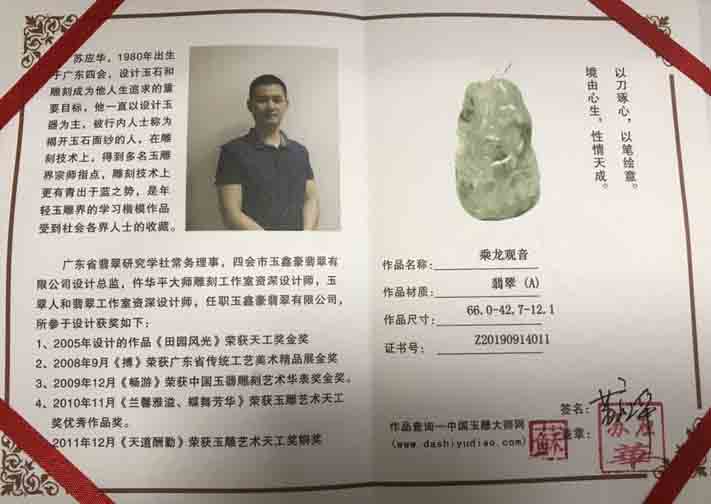 苏应华，1980年出生
于广东四会，设计玉石和
雕刻成为他人生追求的重
要目标，他一直以设计玉
器为主，被行内人士称为
揭开玉石面纱的人，在雕
刻技术上，得到多名玉雕
界宗师指点，雕刻技术上
更有青出于蓝之势，是年
轻玉雕界的学习楷模作品
受到社会各界人士的收藏。
广东省翡翠研究学社常务理事，四会市玉鑫豪翡翠有
限公司设计总监，仵华平大师雕刻工作室资深设计师，玉
翠人和翡翠工作室资深设计师，任职玉鑫豪翡翠有限公司，
所参于设计获奖如下：
1、2005年设计的作品《田园风光》荣获天工奖金奖
2、2008年9月《搏》荣获广东省传统工艺美术精品展金奖
3、2009年12月《畅游》荣获中国玉器雕刻艺术华表奖金奖。
4、2010年11月《兰馨雅溢、蝶舞芳华》荣获玉雕艺术天工
奖优秀作品奖。
2011年12月《天道酬勤》荣获玉雕艺术天工奖铜奖
以刀琢心，以笔绘意。
境由心生，性情天成。
作品名称：乘龙观音
作品材质：翡翠 (A)
作品尺寸：66.0-42.7-12.1
证书号：Z20190914011
签名：苏应华
盖章：
作品查询一中国玉雕大师网
(www.dashiyudiao.com)
蘇
苏应
華